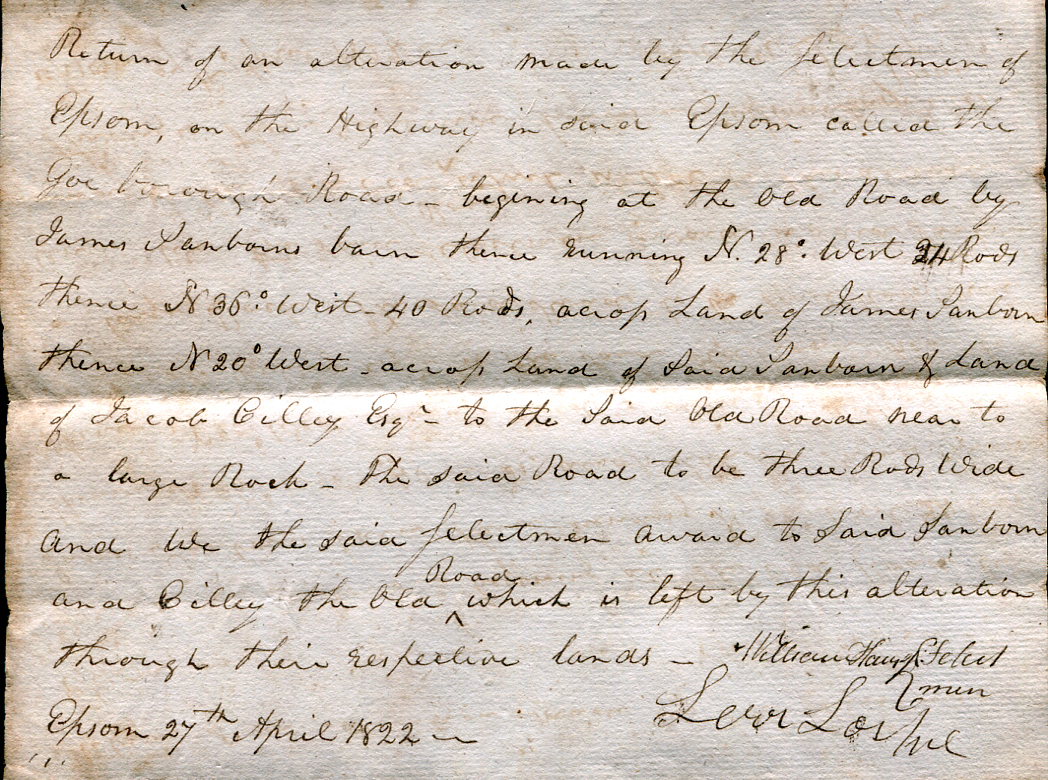 Return of an alteration made by the Selectmen of
Epsom, on the Highway in said Epsom called the
Goe borough Road - begining at the Old Road by
James Sanborns barn thence running N. 28°. West 24 Rods
thence N 36° West - 40 Rods, across Land of James Sanborn
thence N 20° West - across Land of Said Sanborn & Land
of Jacob Cilley Esqr - to the Said Old Road near to
a large Rock - The said Road to be three Rods Wide
and We the said Selectmen award to Said Sanborn
Road
and Cilley the Old ^ which is left by this alteration
through their respective lands - William Ham Jr Select
men
Epsom 27th April 1822 -
Levi Lo